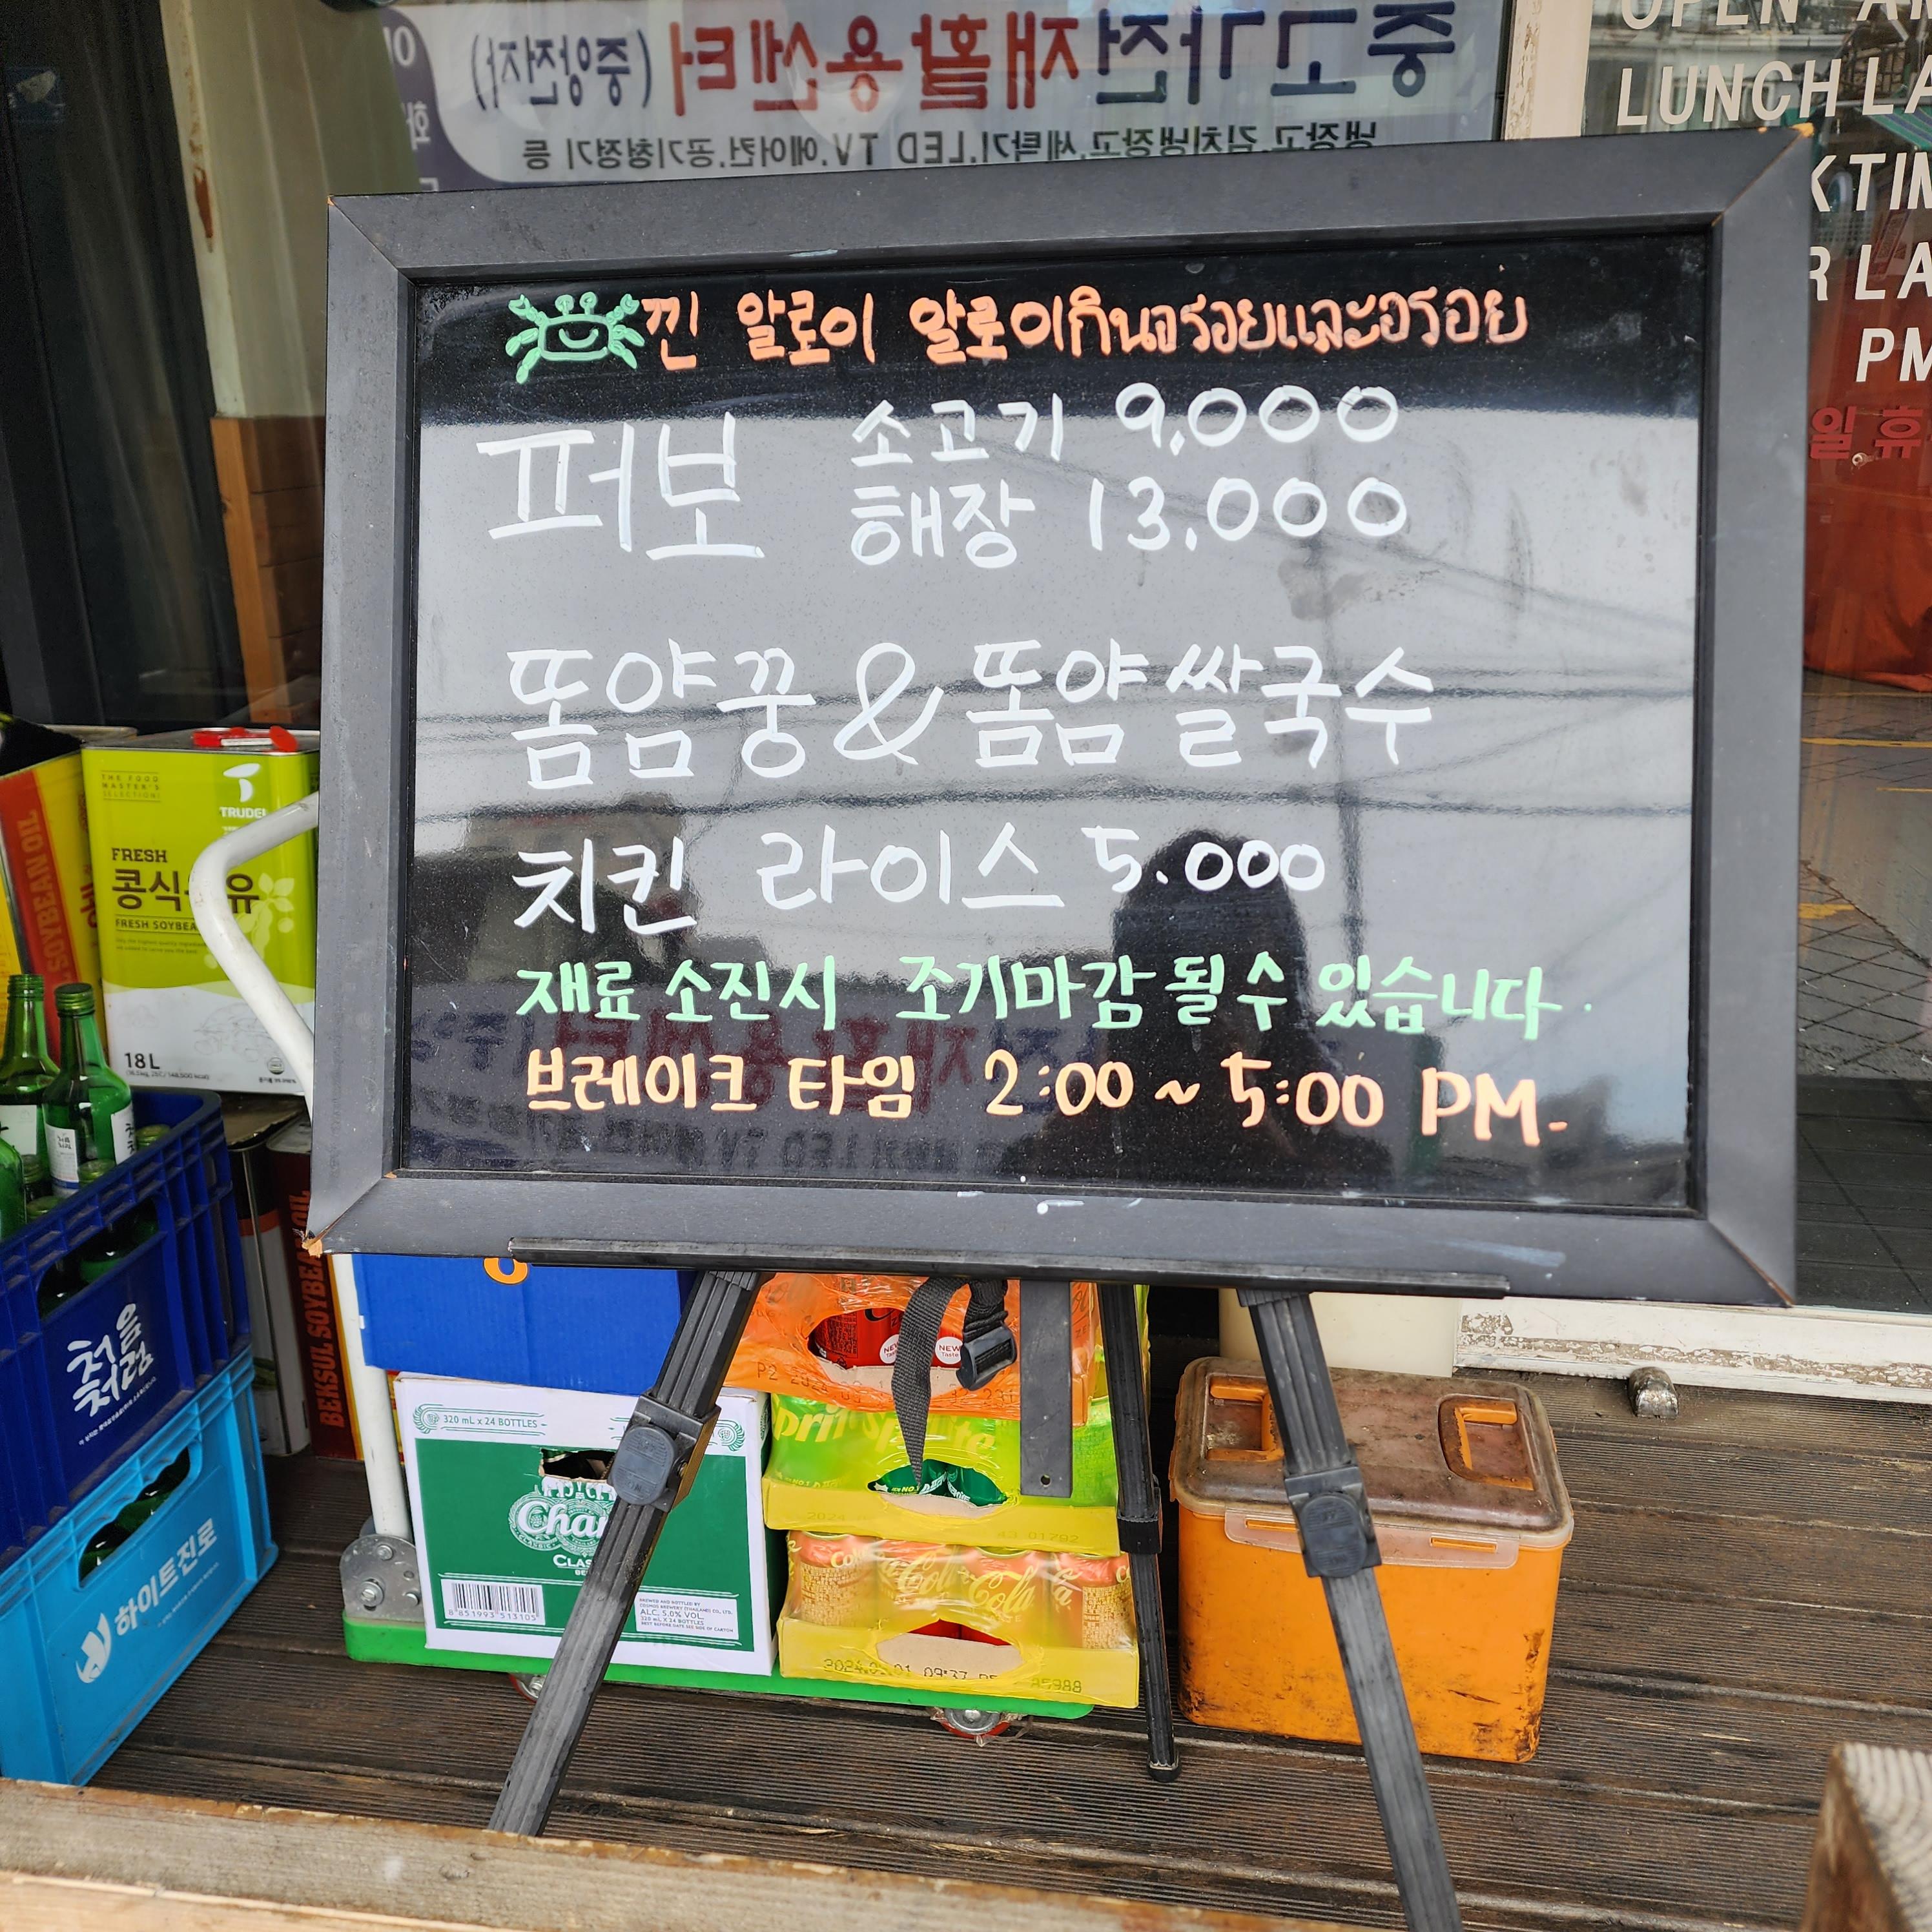 중고가전재활용센터 (중앙전자)
냉장고.김치냉장고.세탁기.LED TV.에어컨.공기청정기 등
OPEN
LUNCH LA
KTIM
R LA
PM
일 휴
낀 알로이 알로이กินอร่อยและอร่อย
퍼보 소고기 9,000
해장 13,000
똠얌꿍 & 똠얌쌀국수
치킨 라이스 5.000
재료 소진시 조기마감 될 수 있습니다.
브레이크 타임 2:00 ~ 5:00 PM.
THE FOOD MASTER'S SELECTION!
TRUDEL
FRESH
콩식 유
FRESH SOYBEA
18L
SOYBEAN OIL
BEKSUL SOYBEAN OIL
처음처럼
하이트진로
320 mL x 24 BOTTLES
Chan
CLAS
8 851993 513105
ALC. 5.0% VOL.
320 mL X 24 BOTTLES
NEW
NEW
Sprite
Coca-Cola
85988